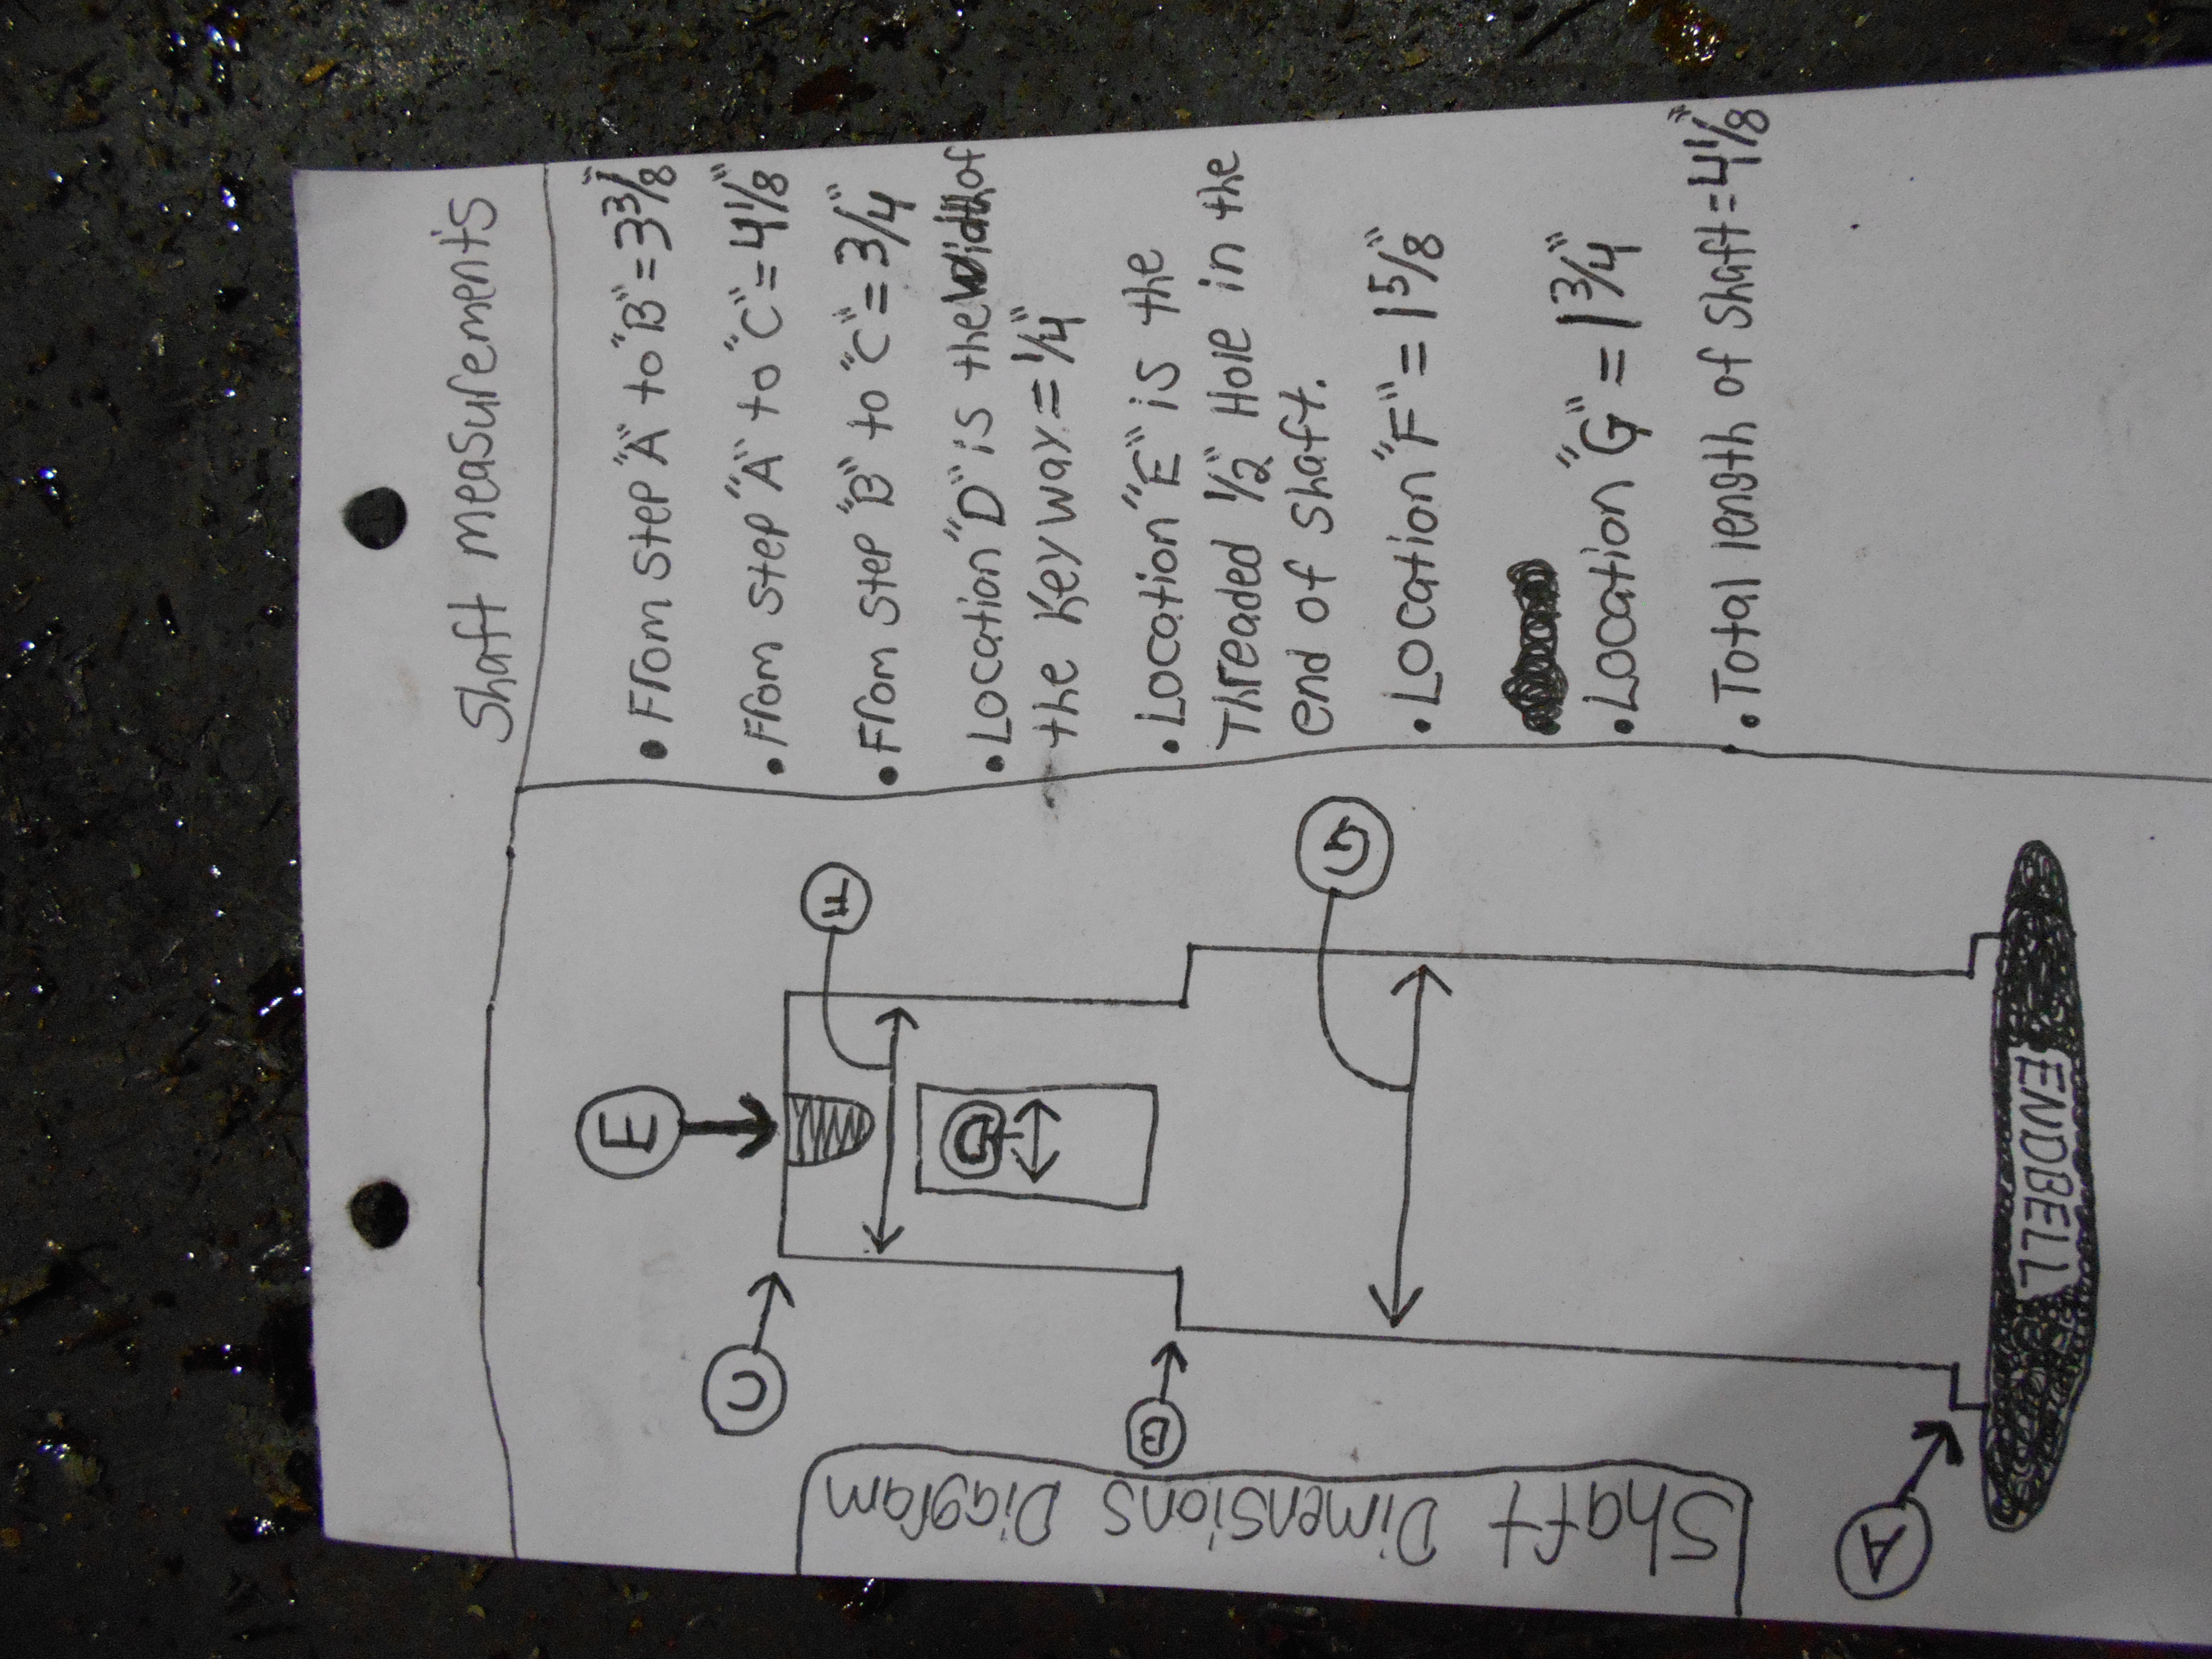 Shaft measurements
• From step "A" to "B" = 3 3/8"
• From step "A" to "C" = 4 1/8"
• From step "B" to "C" = 3/4"
• Location "D" is the width of
the Keyway = 1/4"
• Location "E" is the
Threaded 1/2" Hole in the
end of shaft.
• Location "F" = 1 5/8"
• Location "G" = 1 3/4"
• Total length of shaft = 4 1/8"
E
F
C
D
B
G
A
ENDBELL
Shaft Dimensions Diagram